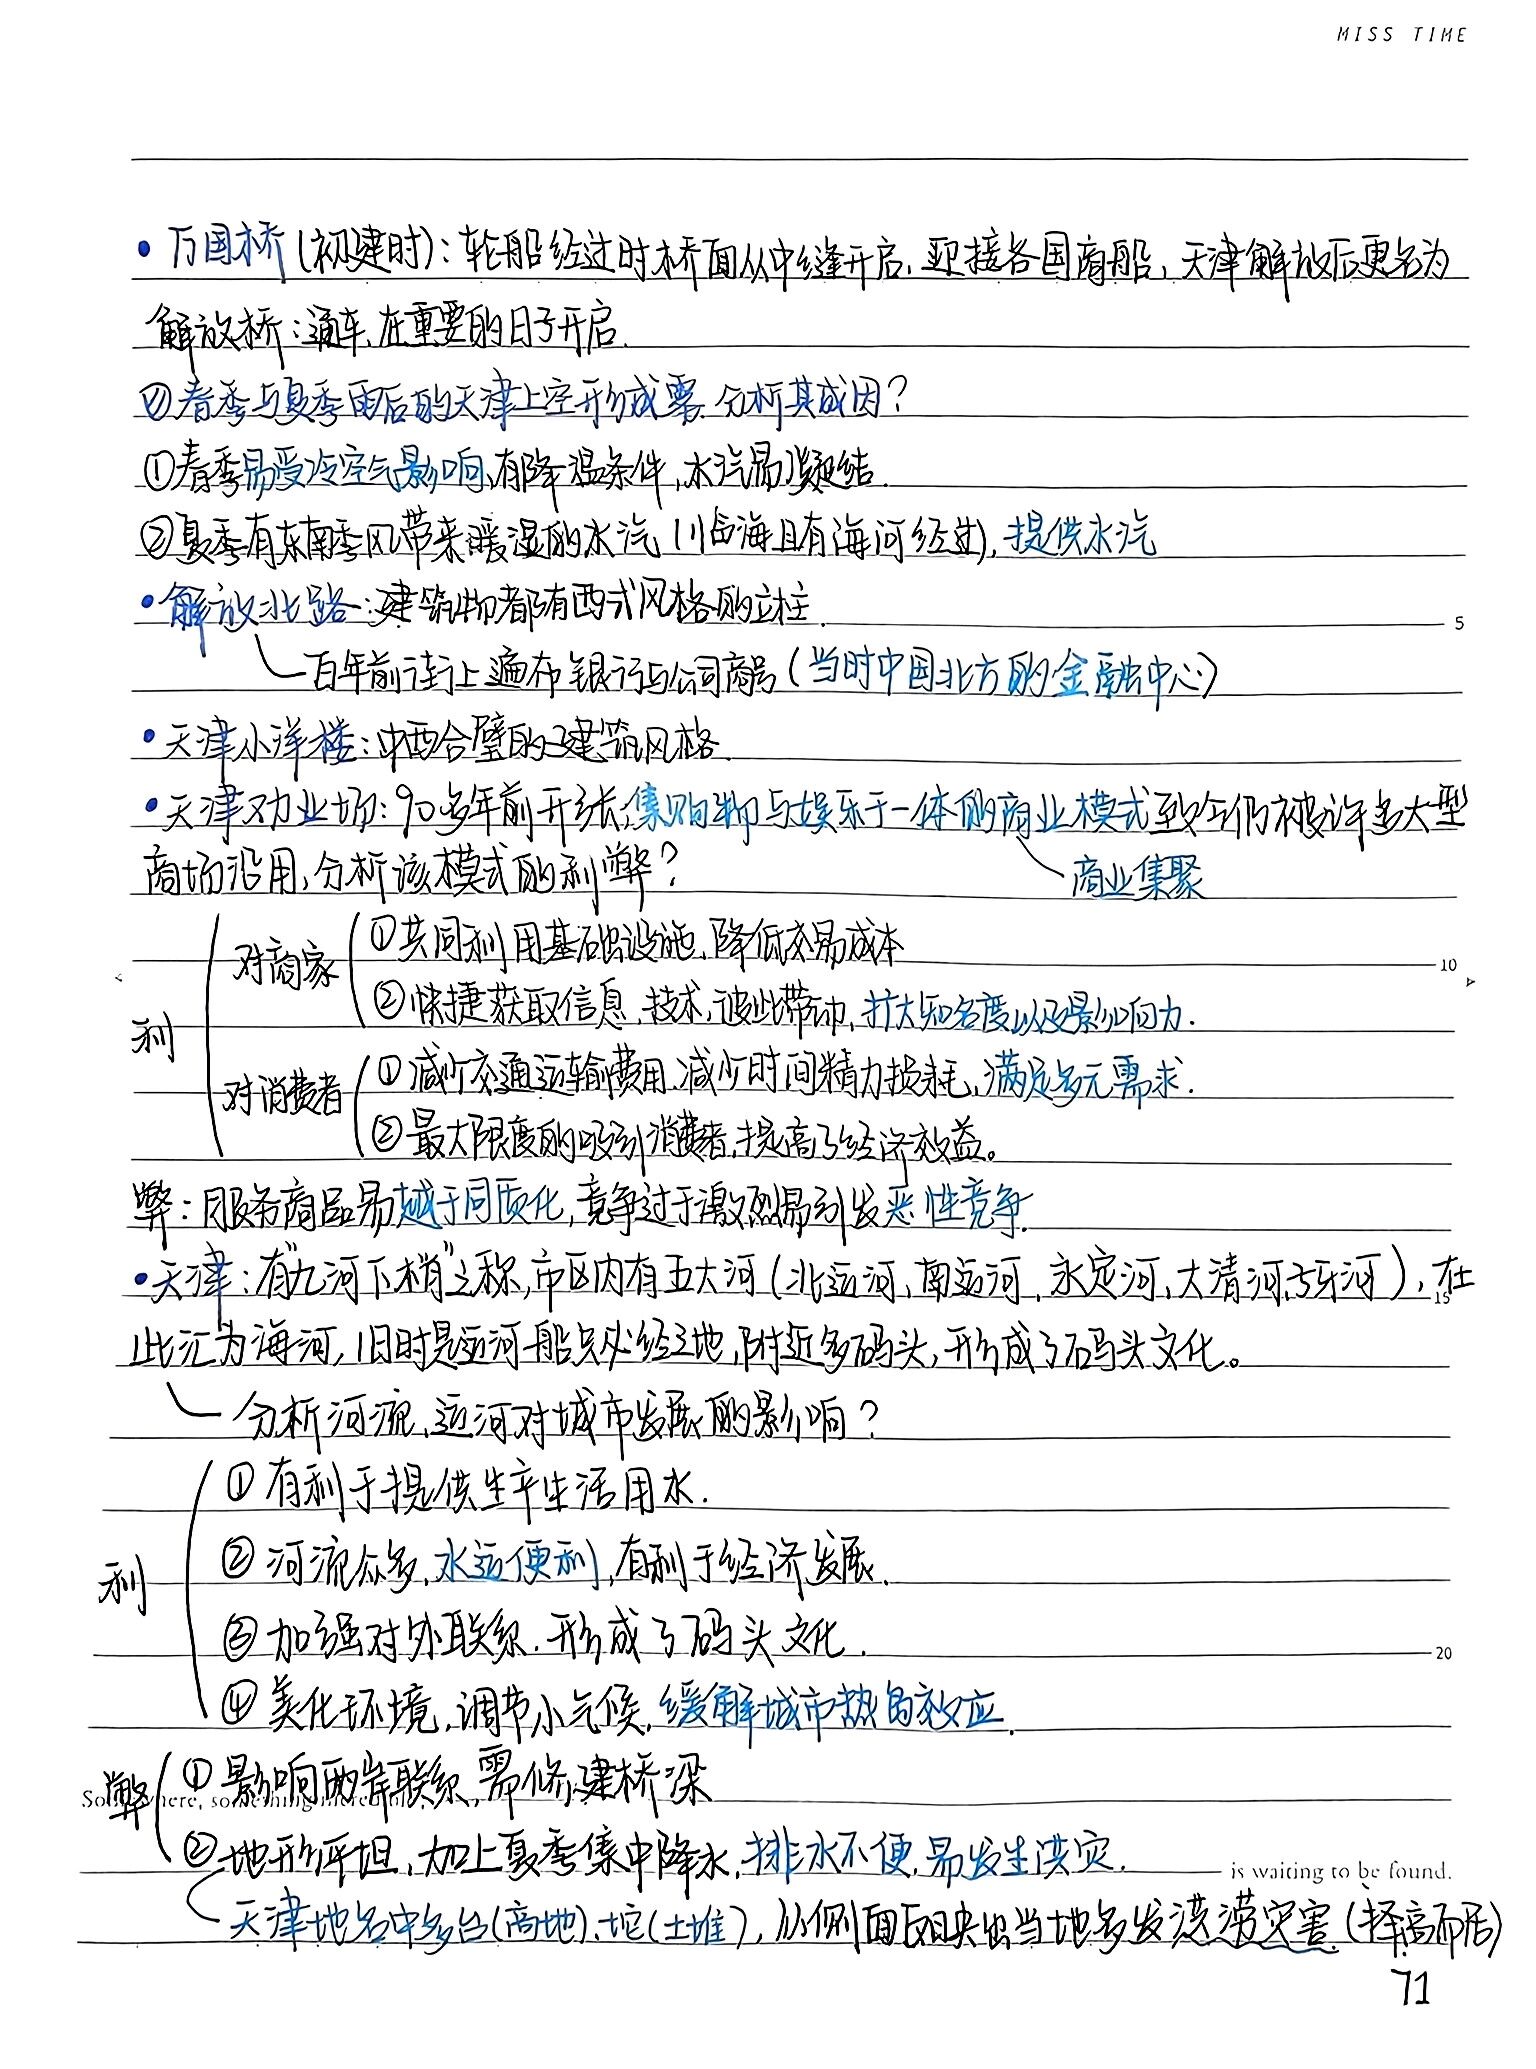 MISS TIME
• 万国桥(初建时)：轮船经过时桥面从中缝开启，迎接各国商船，天津解放后更名为
解放桥：通车、在重要的日子开启.
②春季与夏季雨后的天津上空形成雾,分析其成因?
①春季易受冷空气影响,有降温条件,水汽易凝结.
②夏季有东南季风带来暖湿的水汽(临海且有海河经过),提供水汽
• 解放北路：建筑物都有西式风格的立柱.
百年前街上遍布银行与公司商号(当时中国北方的金融中心)
• 天津小洋楼：中西合璧的建筑风格.
• 天津劝业场：90多年前开张,集购物与娱乐于一体的商业模式至今仍被许多大型
商场沿用,分析该模式的利弊?
商业集聚
利
对商家
①共同利用基础设施,降低交易成本
②快捷获取信息、技术,彼此带动,扩大知名度以及影响力.
对消费者
①减少交通运输费用,减少时间精力损耗,满足多元需求.
②最大限度的吸引消费者,提高了经济效益。
弊：服务商品易趋于同质化,竞争过于激烈易引发恶性竞争.
• 天津：有"九河下梢"之称,市区内有五大河(北运河、南运河、永定河、大清河、子牙河),在
此汇为海河,旧时是运河船只必经之地,附近多码头,形成了码头文化。
分析河流、运河对城市发展的影响?
利
①有利于提供生产生活用水.
②河流众多,水运便利,有利于经济发展.
③加强对外联系.形成了码头文化.
④美化环境,调节小气候,缓解城市热岛效应.
弊
①影响两岸联系,需修建桥梁
②地形平坦,加上夏季集中降水,排水不便,易发生洪灾.
is waiting to be found.
天津地名中多台(高地)、坨(土堆),从侧面反映出当地多发洪涝灾害(择高而居)
5
10
15
20
71